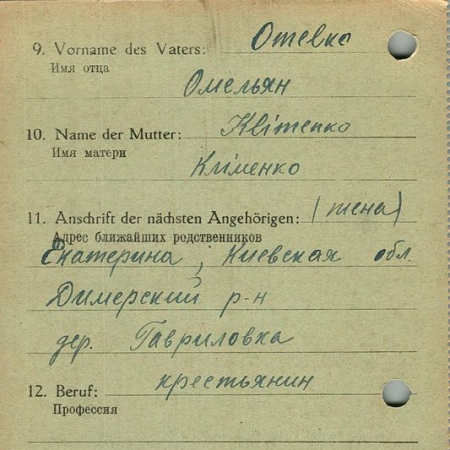 9. Vorname des Vaters: Отевко
Имя отца
Омельян
10. Name der Mutter: Квітенко
Имя матери
Кліменко
11. Anschrift der nächsten Angehörigen: (жена)
Адрес ближайших родственников
Екатерина, Киевская обл.
Димерский р-н
дер. Гавриловка
12. Beruf: крестьянин
Профессия